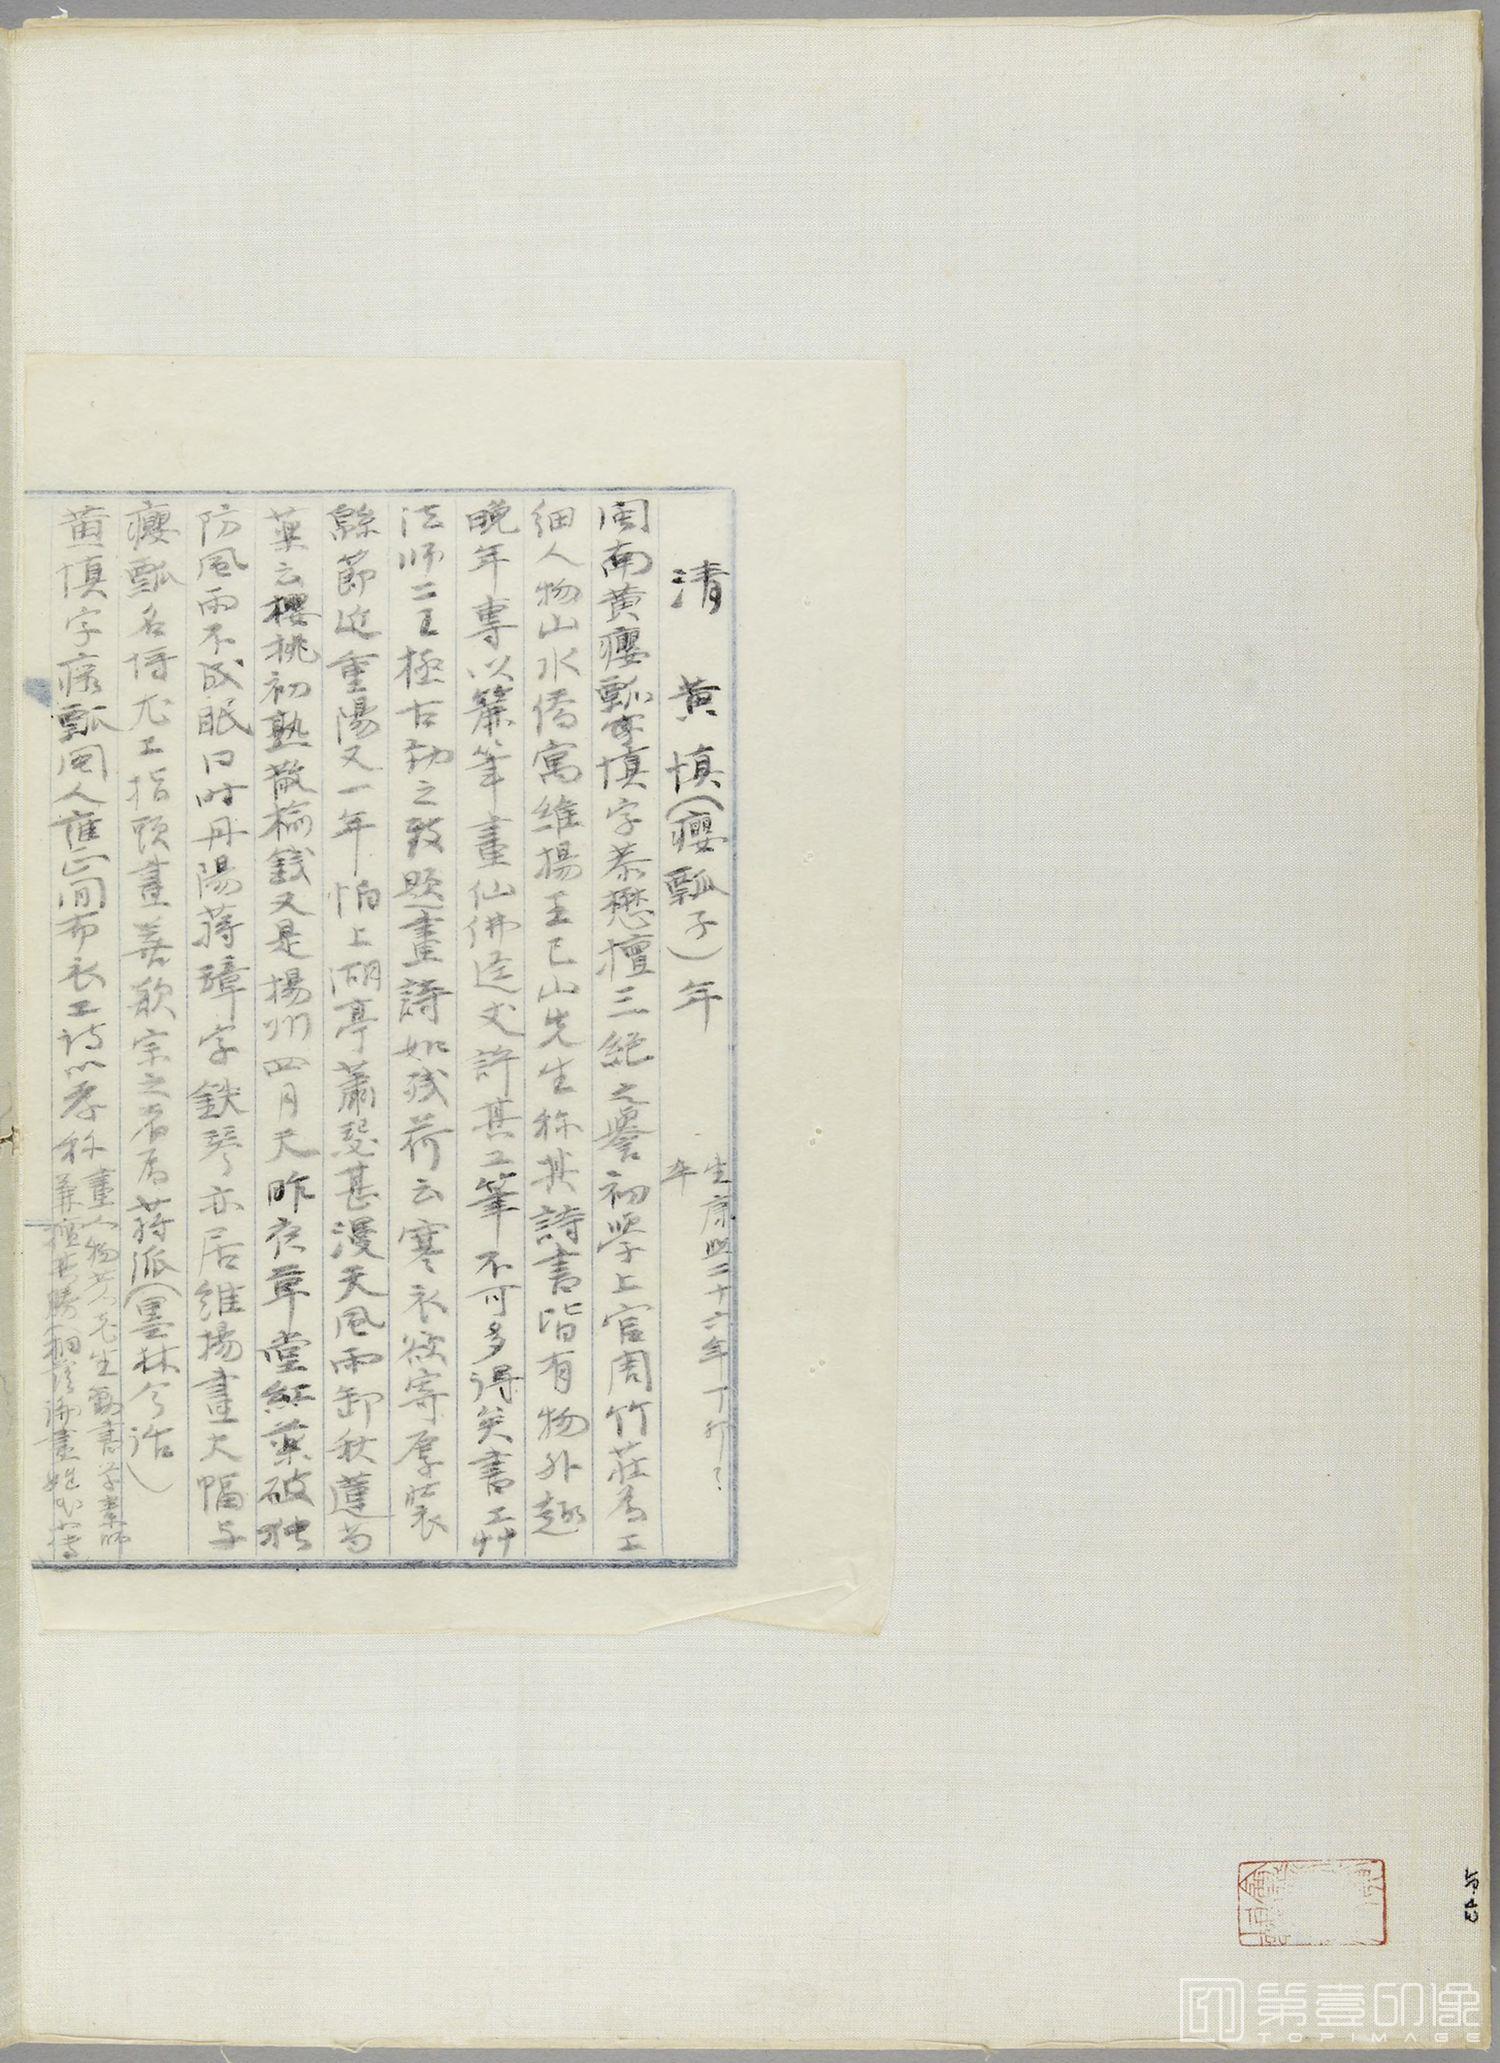 清 黃慎(癭瓢子)年 生康熙二十六年丁卯？
卒
閩南黃癭瓢慎字恭懋擅三絕之譽初學上官周竹莊為工
細人物山水僑寓維揚王己山先生称其詩書皆有物外趣
晚年專以簾筆畫仙佛逕丈許其工筆不可多得矣書工艸
法师二王極古勁之致題畫詩如殘荷云寒衣欲寄厚裝
緜節近重陽又一年怕上湖亭蕭瑟甚漫天風雨卸秋蓮芍
藥云櫻桃初熟散榆錢又是揚州四月天昨夜草堂紅藥破独
防風雨不成眠同时丹陽蒋璋字鉄琴亦居維揚畫大幅与
癭瓢名埒尤工指頭畫善歙宗之者為蒋派(墨林今话)
黄慎字癭瓢閩人雍正间布衣工诗以孝称
畫人物 先生動書学素师
兼擅其勝 桐陰論畫
与43
第壹印像
TOPIMAGE